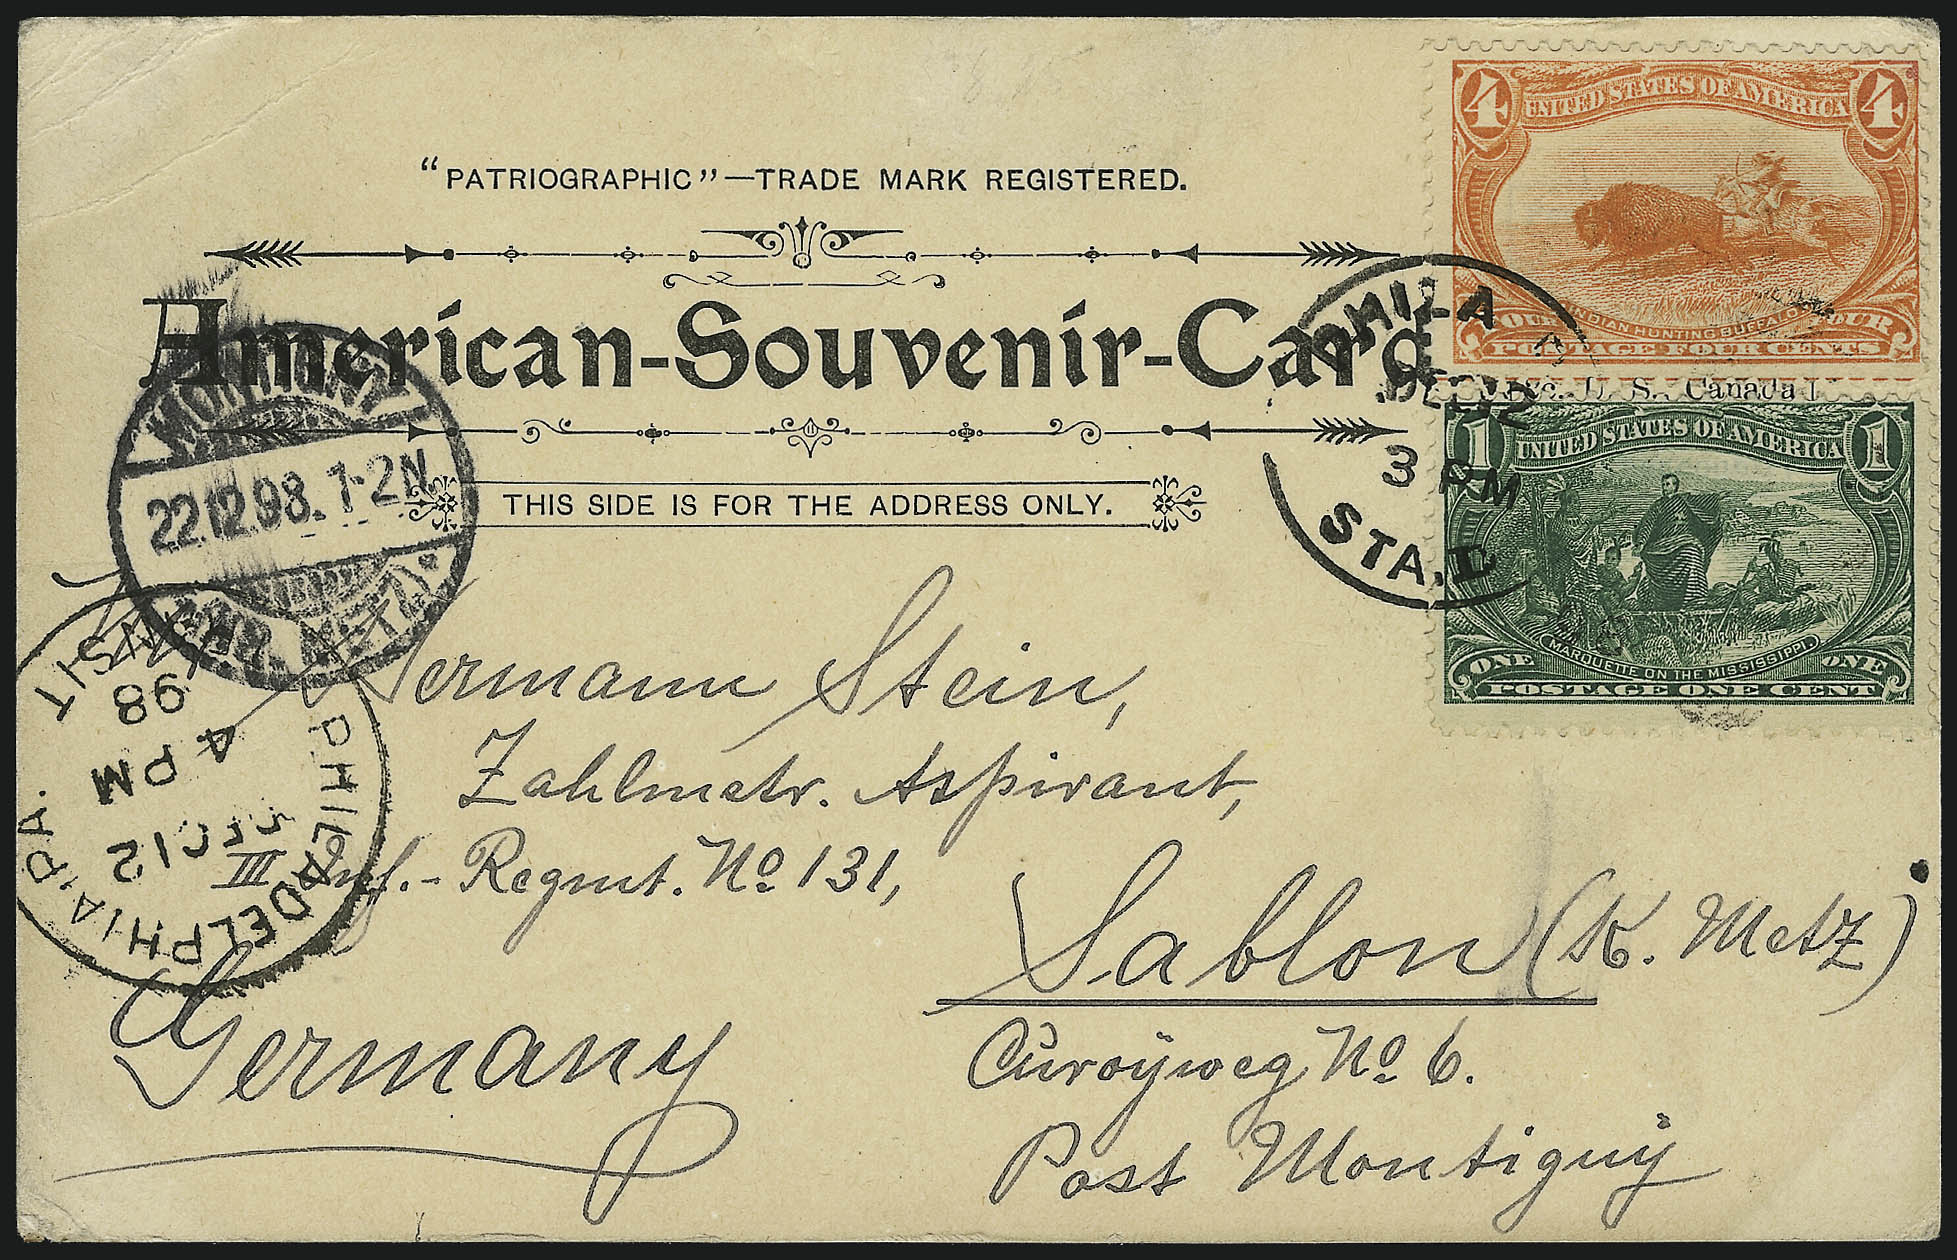 "PATRIOGRAPHIC"—TRADE MARK REGISTERED.
American-Souvenir-Card
THIS SIDE IS FOR THE ADDRESS ONLY.
4 UNITED STATES OF AMERICA 4
INDIAN HUNTING BUFFALO
POSTAGE FOUR CENTS
U. S. Canada
1 UNITED STATES OF AMERICA 1
MARQUETTE ON THE MISSISSIPPI
ONE ONE
POSTAGE ONE CENT
PHILA
DEC 12
3 PM
STA. L
MONTIGNY
22.12.98. 1-2 N.
METZ
PHILADELPHIA, PA.
DEC 12
4 PM
98
TRANSIT
Hermann Stein,
Zahlmstr. Aspirant,
III Inf.- Regmt. No 131,
Sablon (K. Metz)
Germany
Curoÿweg No 6.
Post Montignÿ